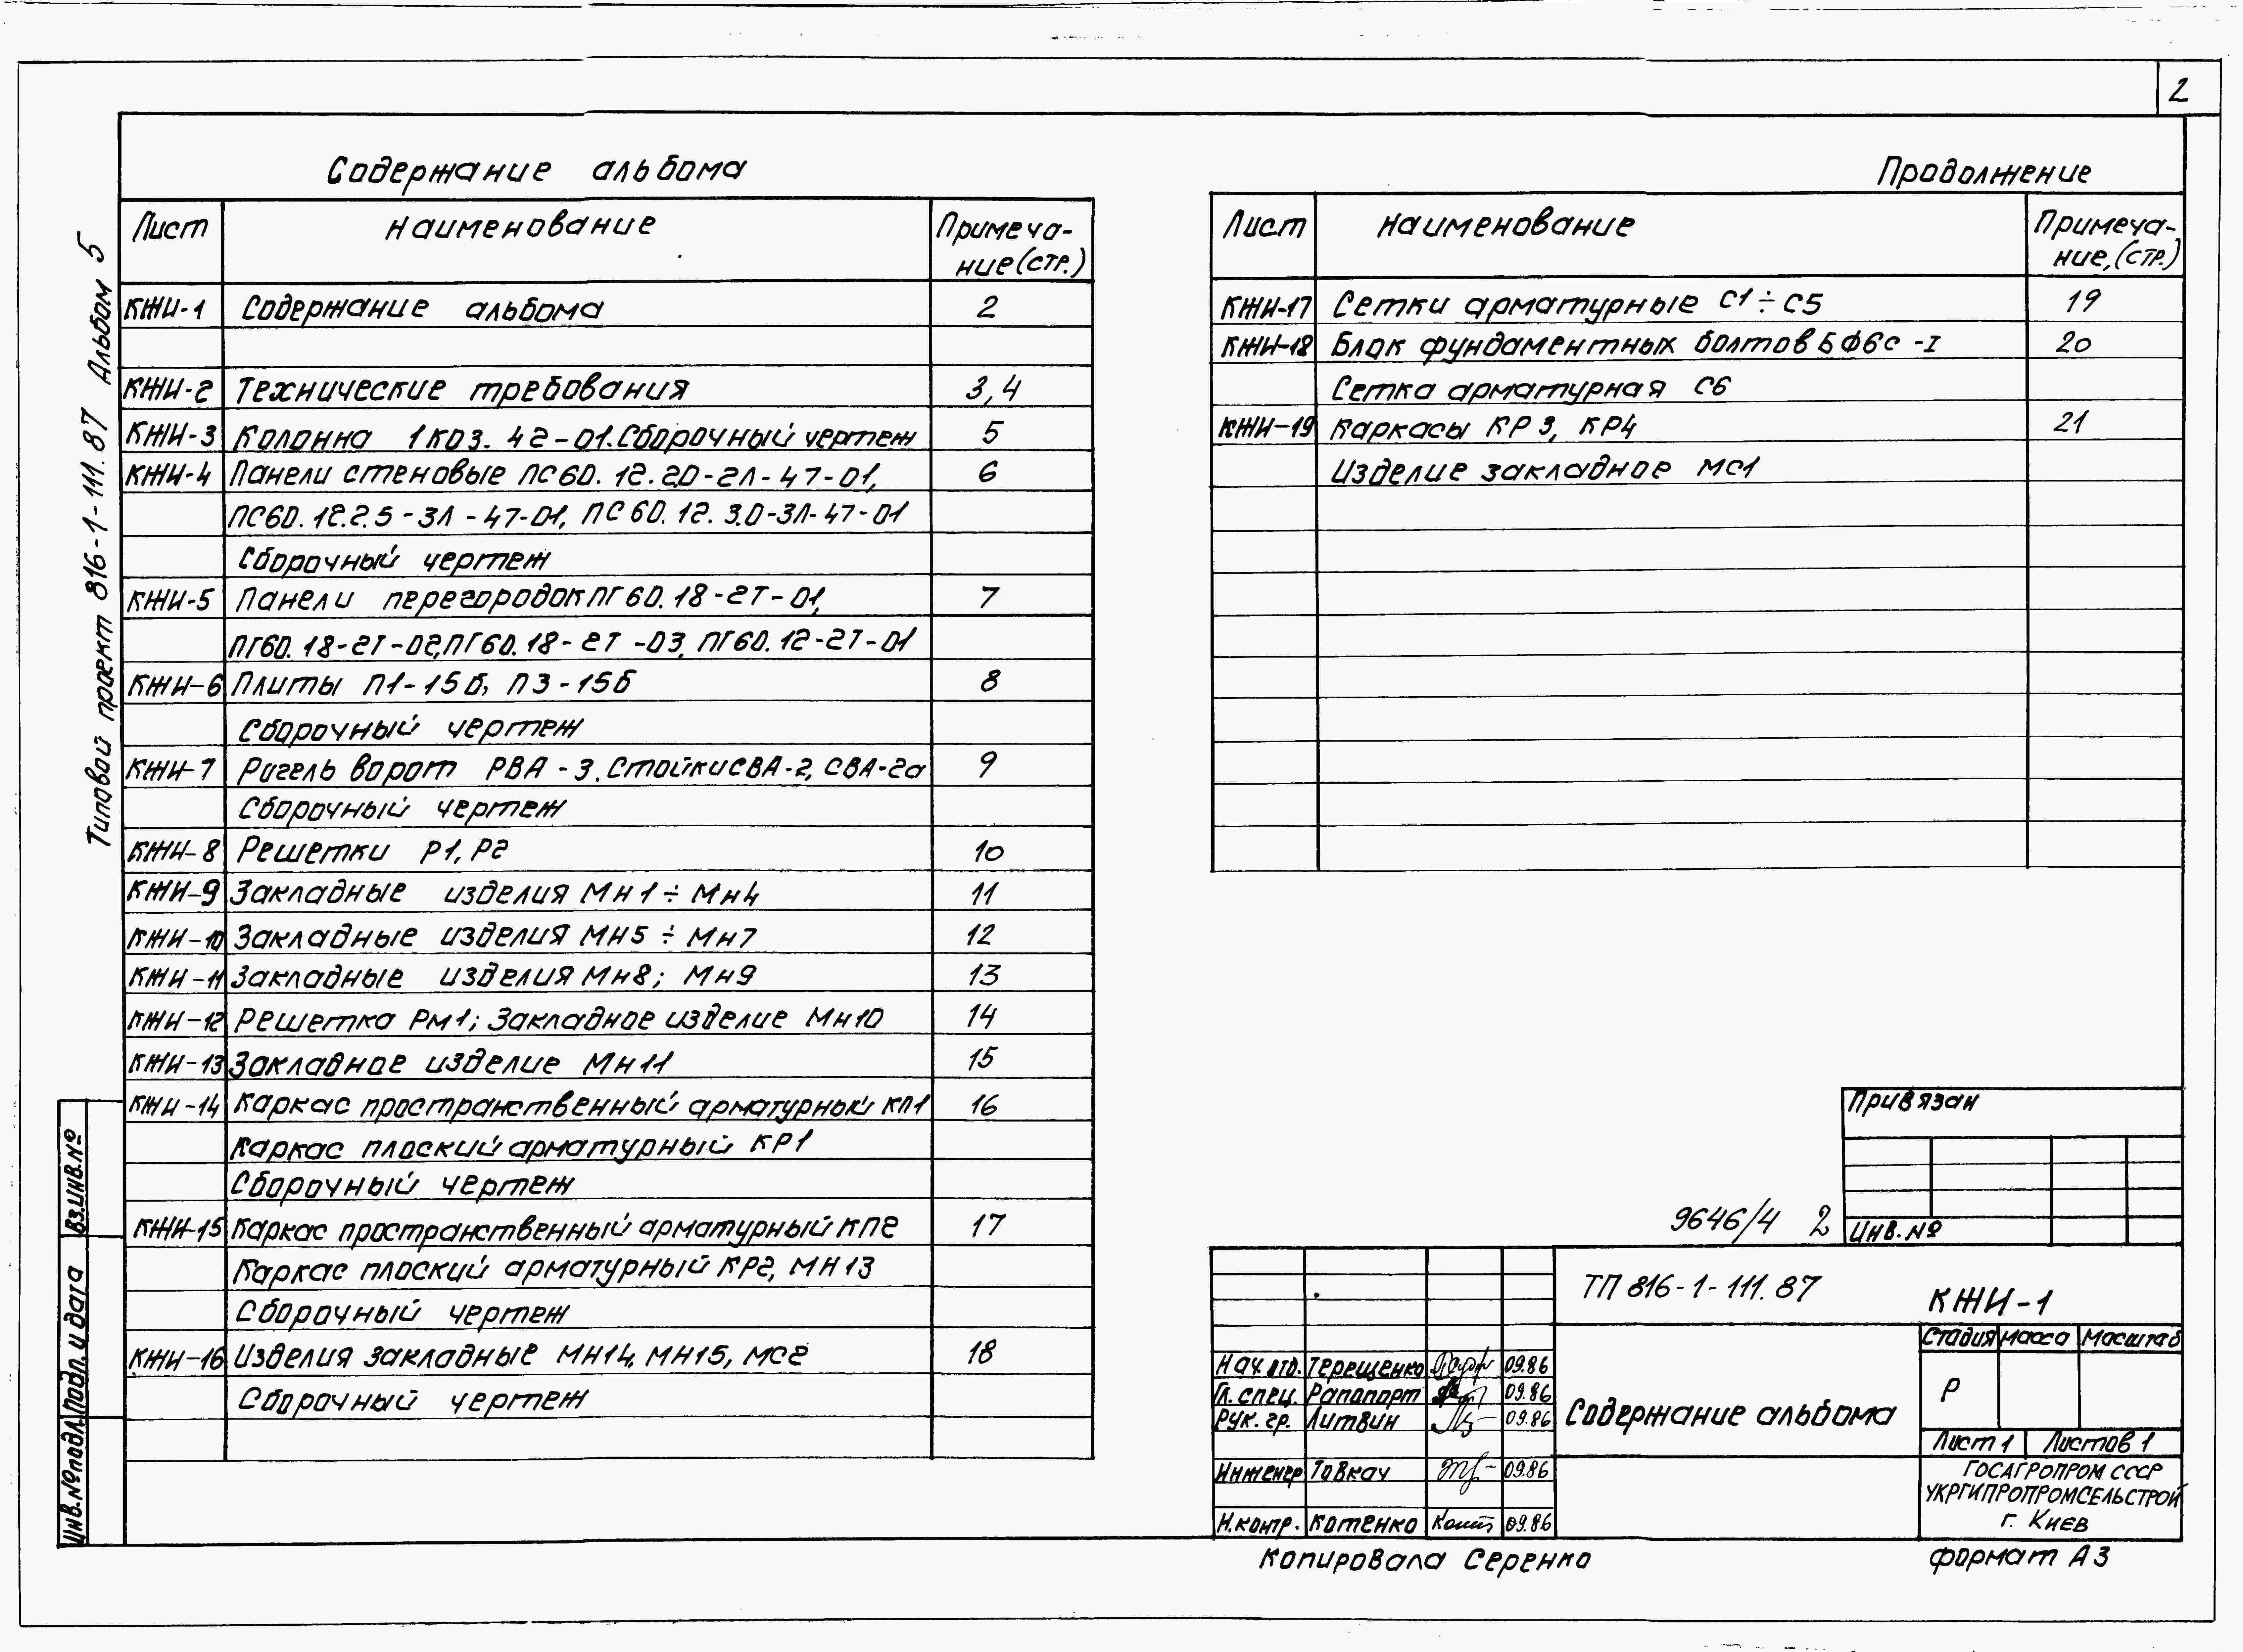 2
Типовой проект 816-1-111.87 Альбом 5
Содержание альбома
Лист Наименование Примеча-
ние (стр.)
КЖИ-1 Содержание альбома 2
КЖИ-2 Технические требования 3,4
КЖИ-3 Колонна 1К03.42-01. Сборочный чертеж 5
КЖИ-4 Панели стеновые ПС60.12.2.0-2Л-47-01, 6
ПС60.12.2.5-3Л-47-01, ПС60.12.3.0-3Л-47-01
Сборочный чертеж
КЖИ-5 Панели перегородок ПГ60.18-2Т-01, 7
ПГ60.18-2Т-02, ПГ60.18-2Т-03, ПГ60.12-2Т-01
КЖИ-6 Плиты П1-15б, П3-15б 8
Сборочный чертеж
КЖИ-7 Ригель ворот РВА-3. Стойки СВА-2, СВА-2а 9
Сборочный чертеж
КЖИ-8 Решетки Р1, Р2 10
КЖИ-9 Закладные изделия Мн1÷Мн4 11
КЖИ-10 Закладные изделия Мн5÷Мн7 12
КЖИ-11 Закладные изделия Мн8; Мн9 13
КЖИ-12 Решетка Рм1; Закладное изделие Мн10 14
КЖИ-13 Закладное изделие Мн11 15
КЖИ-14 Каркас пространственный арматурный КП1 16
Каркас плоский арматурный КР1
Сборочный чертеж
КЖИ-15 Каркас пространственный арматурный КП2 17
Каркас плоский арматурный КР2, МН13
Сборочный чертеж
КЖИ-16 Изделия закладные МН14, МН15, МС2 18
Сборочный чертеж
Продолжение
Лист Наименование Примеча-
ние, (стр.)
КЖИ-17 Сетки арматурные С1÷С5 19
КЖИ-18 Блок фундаментных болтов БФ6с-I 20
Сетка арматурная С6
КЖИ-19 Каркасы КР3, КР4 21
Изделие закладное МС1
Привязан
Инв. №
9646/4 2
ТП 816-1-111.87 КЖИ-1
Нач. отд. Терещенко 09.86
Гл. спец. Рапопорт 09.86
Рук. гр. Литвин 09.86
Инженер Товкач 09.86
Н.контр. Котенко 09.86
Содержание альбома
Стадия Масса Масштаб
Р
Лист 1 Листов 1
ГОСАГРОПРОМ СССР
УКРГИПРОПРОМСЕЛЬСТРОЙ
г. Киев
Копировала Серенко Формат А3
Вз.инв.№
Подп. и дата
Инв.№подл.